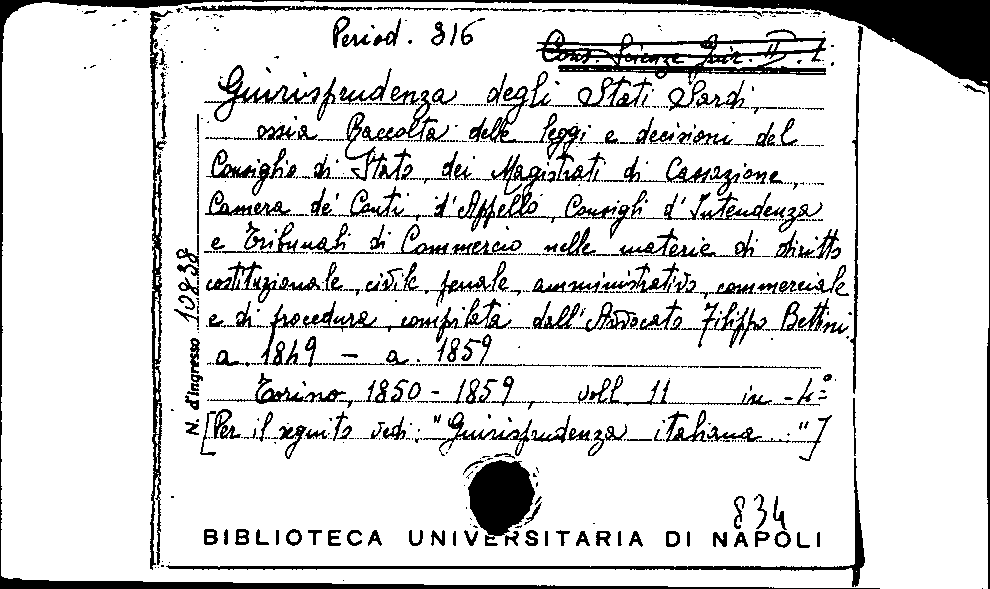 Period. 316
Cons. Scienze Giur. II. 1.
Giurisprudenza degli Stati Sardi,
ossia Raccolta delle leggi e decisioni del
Consiglio di Stato, dei Magistrati di Cassazione,
Camera de' Conti, d'Appello, Consigli d'Intendenza
e Tribunali di Commercio nelle materie di diritto
costituzionale, civile, penale, amministrativo, commerciale
e di procedura, compilata dall'Avvocato Filippo Bettini.
a. 1849 - a. 1859
Torino, 1850 - 1859, voll. 11 in-4°
[Per il seguito vedi: "Giurisprudenza italiana..."]
N. d'Ingresso 10838
834
BIBLIOTECA UNIVERSITARIA DI NAPOLI